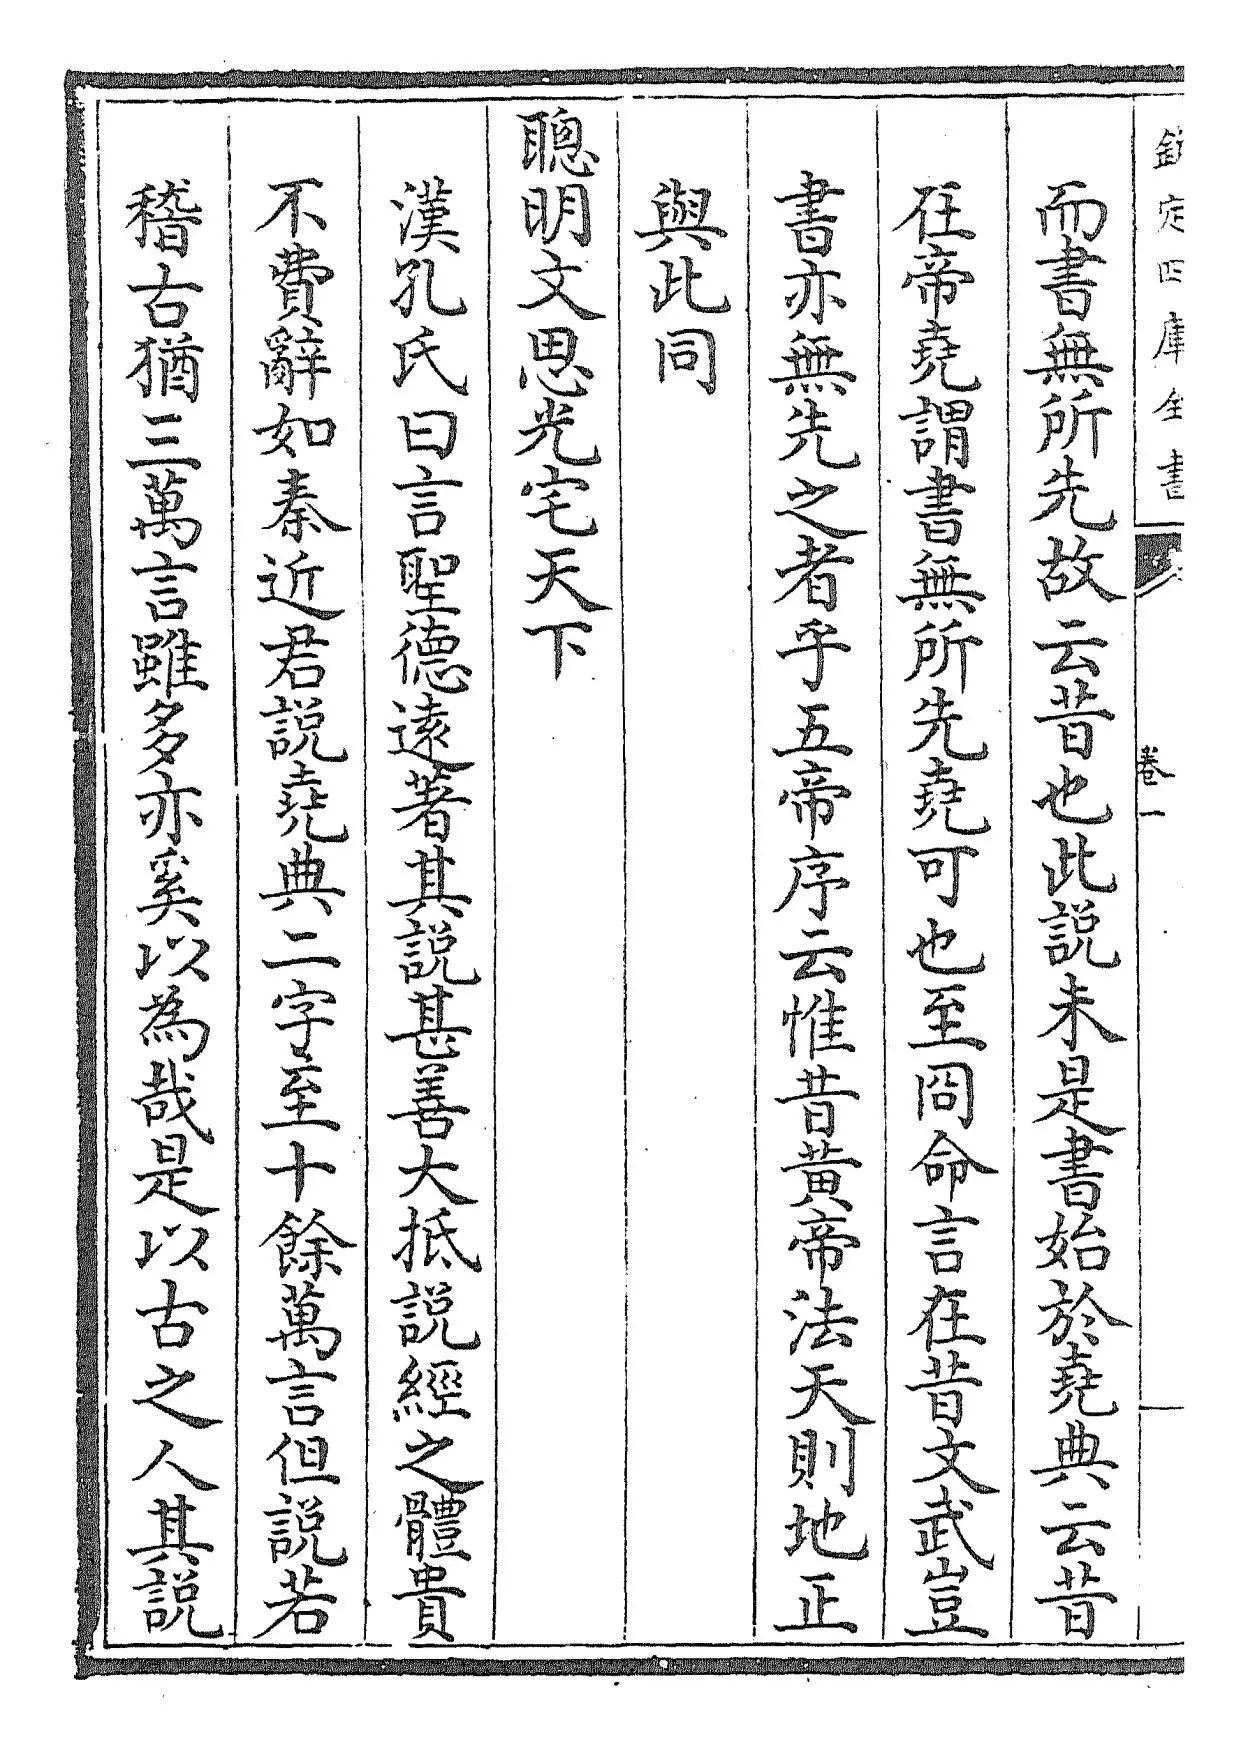 欽定四庫全書
卷一
而書無所先故云昔也此説未是書始於堯典云昔
在帝堯謂書無所先堯可也至冏命言在昔文武豈
書亦無先之者乎五帝序云惟昔黄帝法天則地正
與此同
聰明文思光宅天下
漢孔氏曰言聖德逺著其説甚善大抵説經之體貴
不費辭如秦近君説堯典二字至十餘萬言但説若
稽古猶三萬言雖多亦奚以為哉是以古之人其説